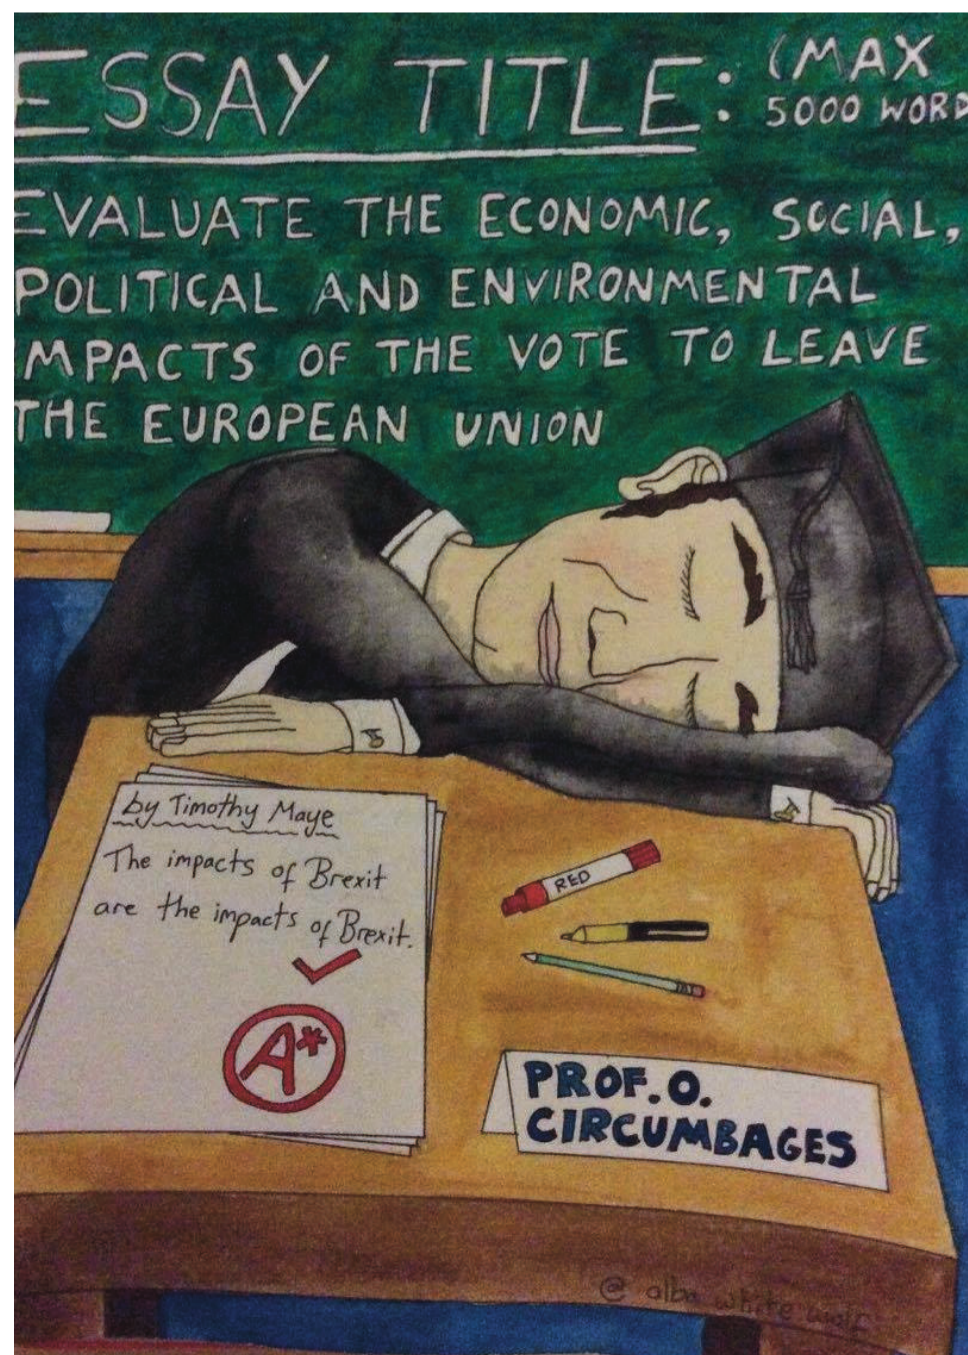 ESSAY TITLE: (MAX
5000 WORD
EVALUATE THE ECONOMIC, SOCIAL,
POLITICAL AND ENVIRONMENTAL
IMPACTS OF THE VOTE TO LEAVE
THE EUROPEAN UNION
by Timothy Maye
The impacts of Brexit
are the impacts of Brexit.
A*
RED
PROF. O.
CIRCUMBAGES
@ alba white wolf